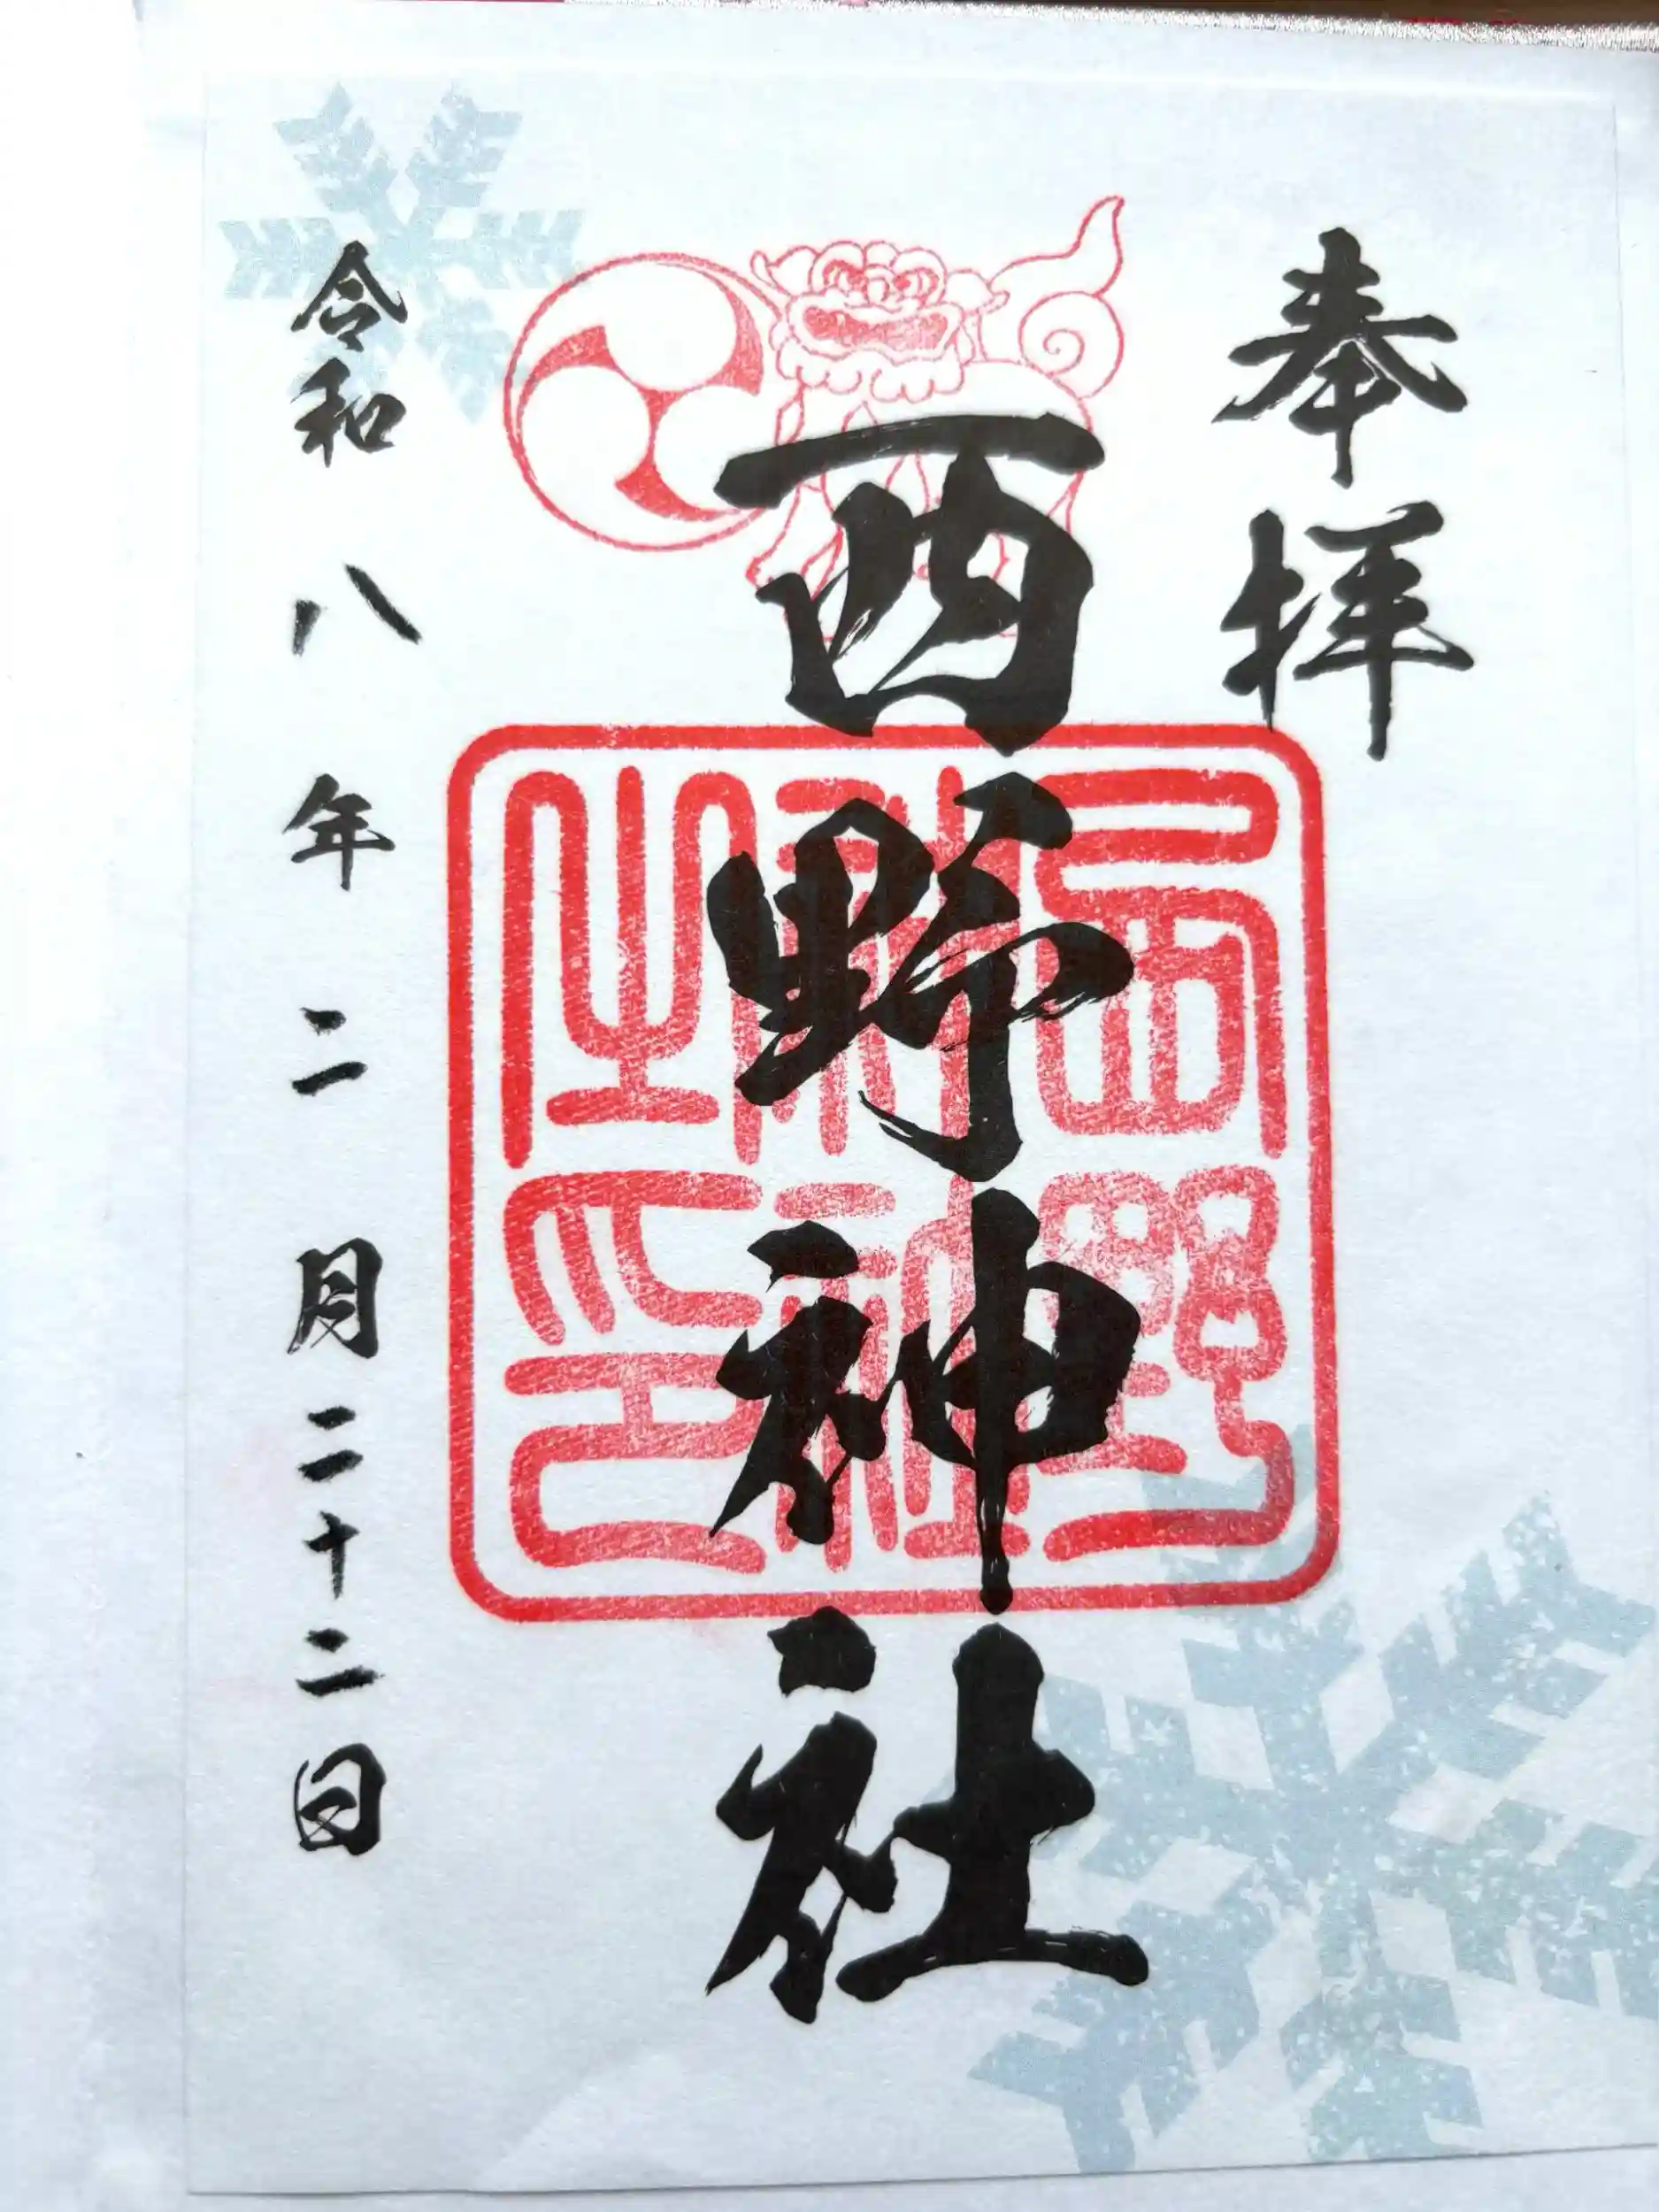 奉拝
西野神社
西野神社之印
令和八年二月二十二日